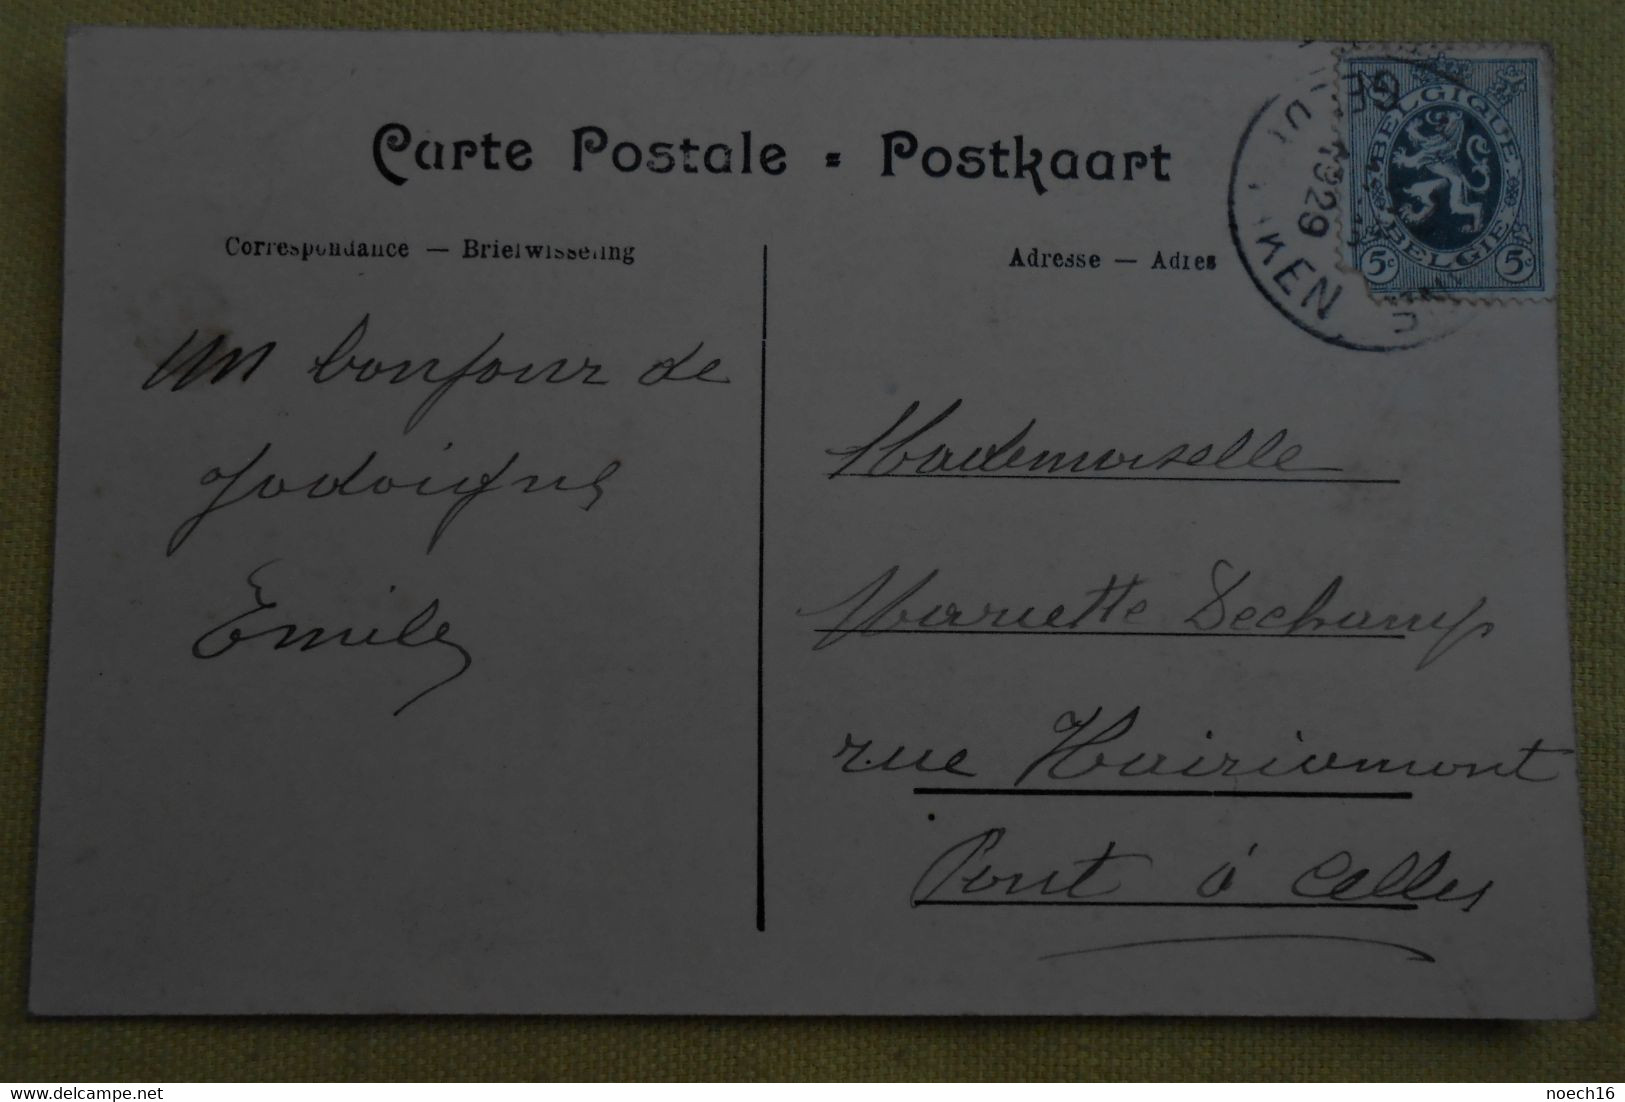 Carte Postale = Postkaart
Correspondance — Briefwisseling
Adresse — Adres
BELGIQUE
BELGIE
5c 5c
1929
KEN
Un bonjour de
Jodoigne
Emile
Mademoiselle
Mariette Dechamp
rue Hairiamont
Pont à Celles
noech16